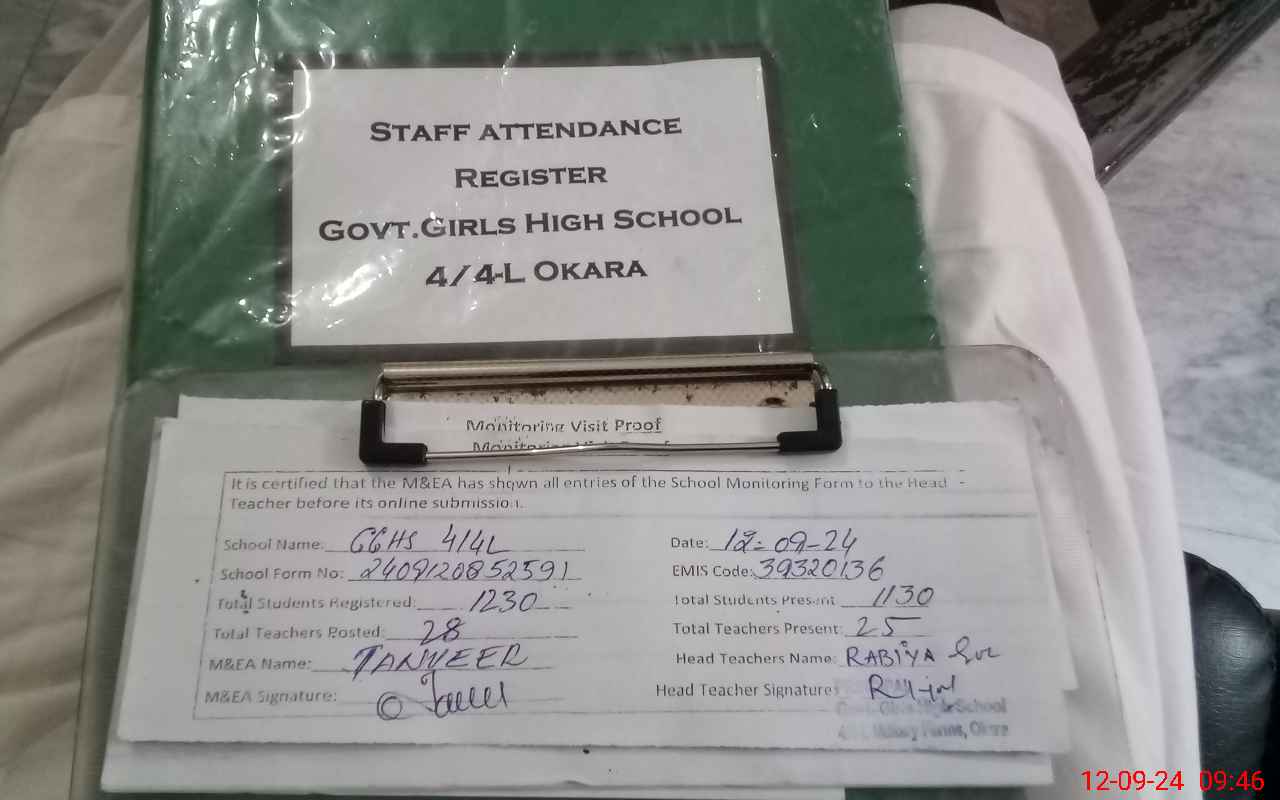 STAFF ATTENDANCE
REGISTER
GOVT.GIRLS HIGH SCHOOL
4/4-L OKARA
Monitoring Visit Proof
Monitoring Visit Proof
It is certified that the M&EA has shown all entries of the School Monitoring Form to the Head
Teacher before its online submission.
School Name: GGHS 4/4L Date: 12-09-24
School Form No: 2409120852591 EMIS Code: 39320136
Total Students Registered: 1230 Total Students Present 1130
Total Teachers Posted: 28 Total Teachers Present: 25
M&EA Name: TANVEER Head Teachers Name: RABIYA
M&EA Signature: Head Teacher Signature:
Govt. Girls High School
Military Farms, Okara
12-09-24 09:46